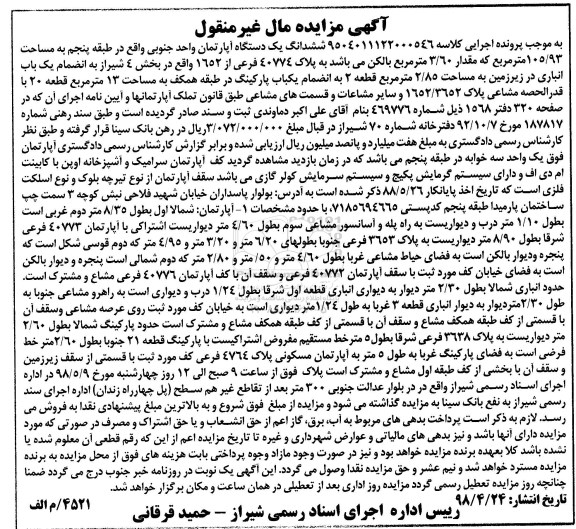 آگهی مزایده مال غیرمنقول
به موجب پرونده اجرایی کلاسه ۹۵۰۴۰۱۱۱۲۲۰۰۰۵۴۶ ششدانگ یک دستگاه آپارتمان واحد جنوبی واقع در طبقه پنجم به مساحت
۱۰۵/۹۳ مترمربع که مقدار ۳/۶۰ مترمربع بالکن می باشد به پلاک ۴۰۷۷۴ فرعی از ۱۶۵۲ واقع در بخش ۴ شیراز به انضمام یک باب
انباری در زیرزمین به مساحت ۲/۸۵ مترمربع قطعه ۲ به انضمام یکباب پارکینگ در طبقه همکف به مساحت ۱۳ مترمربع قطعه ۲۰ با
قدرالحصه مشاعی پلاک ۱۶۵۲/۳۶۵۲ و سایر مشاعات و قسمت های مشاعی طبق قانون تملک آپارتمانها و آیین نامه اجرای آن که در
صفحه ۳۲۰ دفتر ۱۵۶۸ ذیل شماره ۴۶۹۷۷۶ بنام آقای علی اکبر دماوندی ثبت و سند صادر گردیده است و طبق سند رهنی شماره
۱۸۷۸۱۷ مورخ ۹۲/۱۰/۷ دفترخانه شماره ۷۰ شیراز در قبال مبلغ ۳/۰۷۲/۰۰۰/۰۰۰ ریال در رهن بانک سینا قرار گرفته و طبق نظر
کارشناس رسمی دادگستری به مبلغ هفت میلیارد و پانصد میلیون ریال ارزیابی شده و برابر گزارش کارشناس رسمی دادگستری آپارتمان
فوق یک واحد سه خوابه در طبقه پنجم می باشد که در زمان بازدید مشاهده گردید کف آپارتمان سرامیک و آشپزخانه اوپن با کابینت
ام دی اف و دارای سیستم گرمایش پکیج و سیستم سرمایش کولر گازی می باشد سقف آپارتمان از نوع تیرچه بلوک و نوع اسکلت
فلزی است که تاریخ اخذ پایانکار ۸۸/۵/۲۶ ذکر شده است به آدرس: بولوار پاسداران خیابان شهید فلاحی نبش کوچه ۳ سمت چپ
ساختمان پارمیدا طبقه پنجم کدپستی ۷۱۸۵۶۹۴۶۶۵ با حدود مشخصات ۱- آپارتمان: شمالا اول بطول ۸/۳۵ متر دوم غربی است
بطول ۱/۱۰ متر درب و دیواریست به راه پله و آسانسور مشاعی سوم بطول ۴/۶۰ متر دیواریست اشتراکی با آپارتمان ۴۰۷۷۳ فرعی
شرقا بطول ۸/۹۰ متر دیواریست به پلاک ۳۶۵۳ فرعی جنوبا بطولهای ۶/۲۰ متر و ۳/۲۰ متر و ۴/۹۵ متر که دوم قوسی شکل است که
پنجره ودیوار بالکن است به فضای حیاط مشاعی غربا بطول ۴/۶۰ متر و ۵۰/ متر و ۲/۸۰ متر که دوم شمالی است پنجره و دیوار بالکن
است به فضای خیابان کف مورد ثبت با سقف آپارتمان ۴۰۷۷۲ فرعی و سقف آن با کف آپارتمان ۴۰۷۷۶ فرعی مشاع و مشترک است.
حدود انباری شمالا بطول ۲/۳۰ متر دیوار به دیواری مشاعی انباری قطعه اول شرقا بطول ۱/۲۴ درب و دیواری است به راهرو مشاعی جنوبا به
طول ۲/۳۰ متردیوار به دیوار انباری قطعه ۳ غربا به طول ۱/۲۴ متر دیواری است به خیابان کف مورد ثبت روی عرصه مشاعی وسقف آن
با قسمتی از کف طبقه همکف مشاع و سقف آن با قسمتی از کف طبقه همکف مشاع و مشترک است حدود پارکینگ شمالا بطول ۲/۶۰
متر دیواریست به پلاک ۳۶۳۸ فرعی شرقا بطول ۵ مترخط مستقیم مفروض اشتراکیست با پارکینگ قطعه ۲۱ جنوبا بطول ۲/۶۰ متر خط
فرضی است به فضای پارکینگ غربا به طول ۵ متر به آپارتمان مسکونی پلاک ۴۷۶۴ فرعی کف مورد ثبت با قسمتی از سقف زیرزمین
و سقف آن با بخشی از کف طبقه اول مشاع و مشترک است پلاک فوق از ساعت ۹ صبح الی ۱۲ روز چهارشنبه مورخ ۹۸/۵/۹ در اداره
اجرای اسناد رسمی شیراز واقع در در بلوار عدالت جنوبی ۳۰۰ متر بعد از تقاطع غیر هم سطح (پل چهارراه زندان) اداره اجرای سند
رسمی شیراز به نفع بانک سینا به مزایده گذاشته می شود و مزایده از مبلغ فوق شروع و به بالاترین مبلغ پیشنهادی نقدا به فروش می
رسد. لازم به ذکر است پرداخت بدهی های مربوط به آب، برق، گاز اعم از حق انشعاب و یا حق اشتراک و مصرف در صورتی که مورد
مزایده دارای آنها باشد و نیز بدهی های مالیاتی و عوارض شهرداری و غیره تا تاریخ مزایده اعم از این که رقم قطعی آن معلوم شده یا
نشده باشد کلا بعهده برنده مزایده خواهد بود و نیز در صورت وجود مازاد وجوه پرداختی بابت هزینه های فوق از محل مزایده به برنده
مزایده مسترد خواهد شد و نیم عشر و حق مزایده نقدا وصول می گردد. این آگهی یک نوبت در روزنامه خبر جنوب درج می گردد ضمنا
چنانچه روز مزایده تعطیل رسمی گردد مزایده روز اداری بعد از تعطیلی در همان ساعت و مکان برگزار خواهد شد.
تاریخ انتشار: ۹۸/۴/۲۴
۴۵۲۱/م الف
رییس اداره اجرای اسناد رسمی شیراز – حمید قرقانی